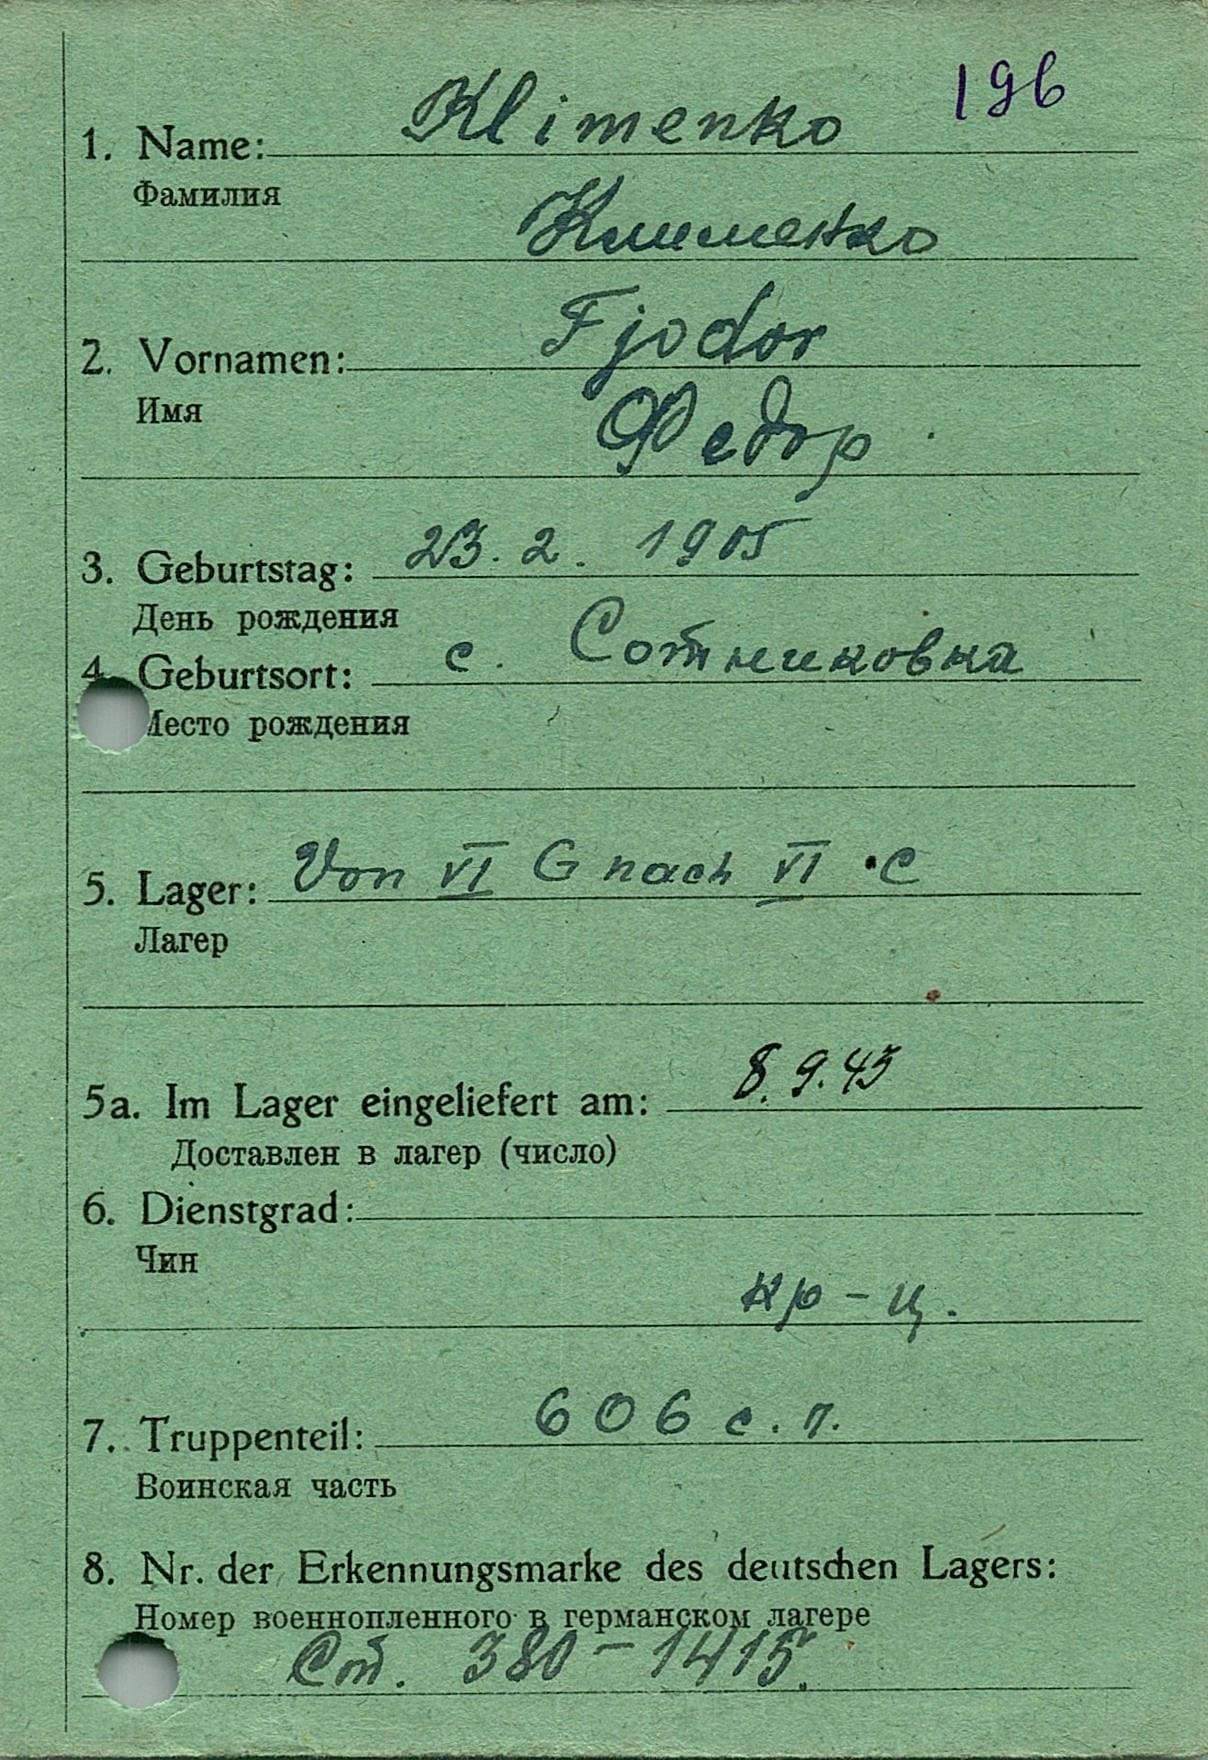 196
1. Name: Klimenko
Фамилия
Клименко
2. Vornamen: Fjodor
Имя
Федор
3. Geburtstag: 23. 2. 1905
День рождения
4. Geburtsort: с. Сотниковка
Место рождения
5. Lager: Von VI G nach VI C
Лагер
5a. Im Lager eingeliefert am: 8.9.43
Доставлен в лагер (число)
6. Dienstgrad:
Чин
кр-ц.
7. Truppenteil: 606 с. п.
Воинская часть
8. Nr. der Erkennungsmarke des deutschen Lagers:
Номер военнопленного в германском лагере
Ст. 380-1415.